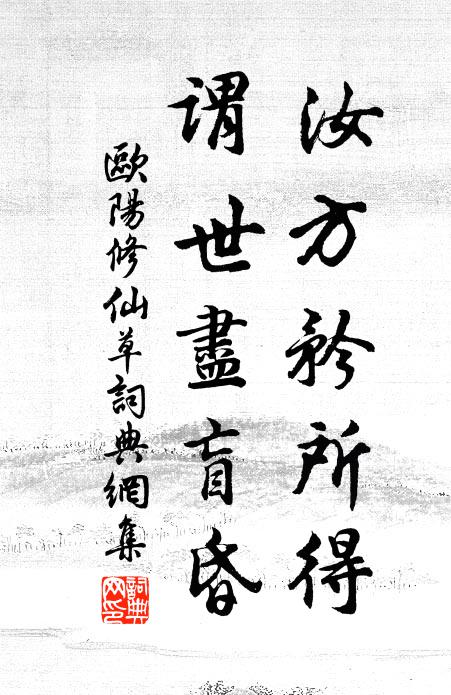 汝方矜所得
謂世盡盲昏
歐陽修仙草詞典網集
詞典網印